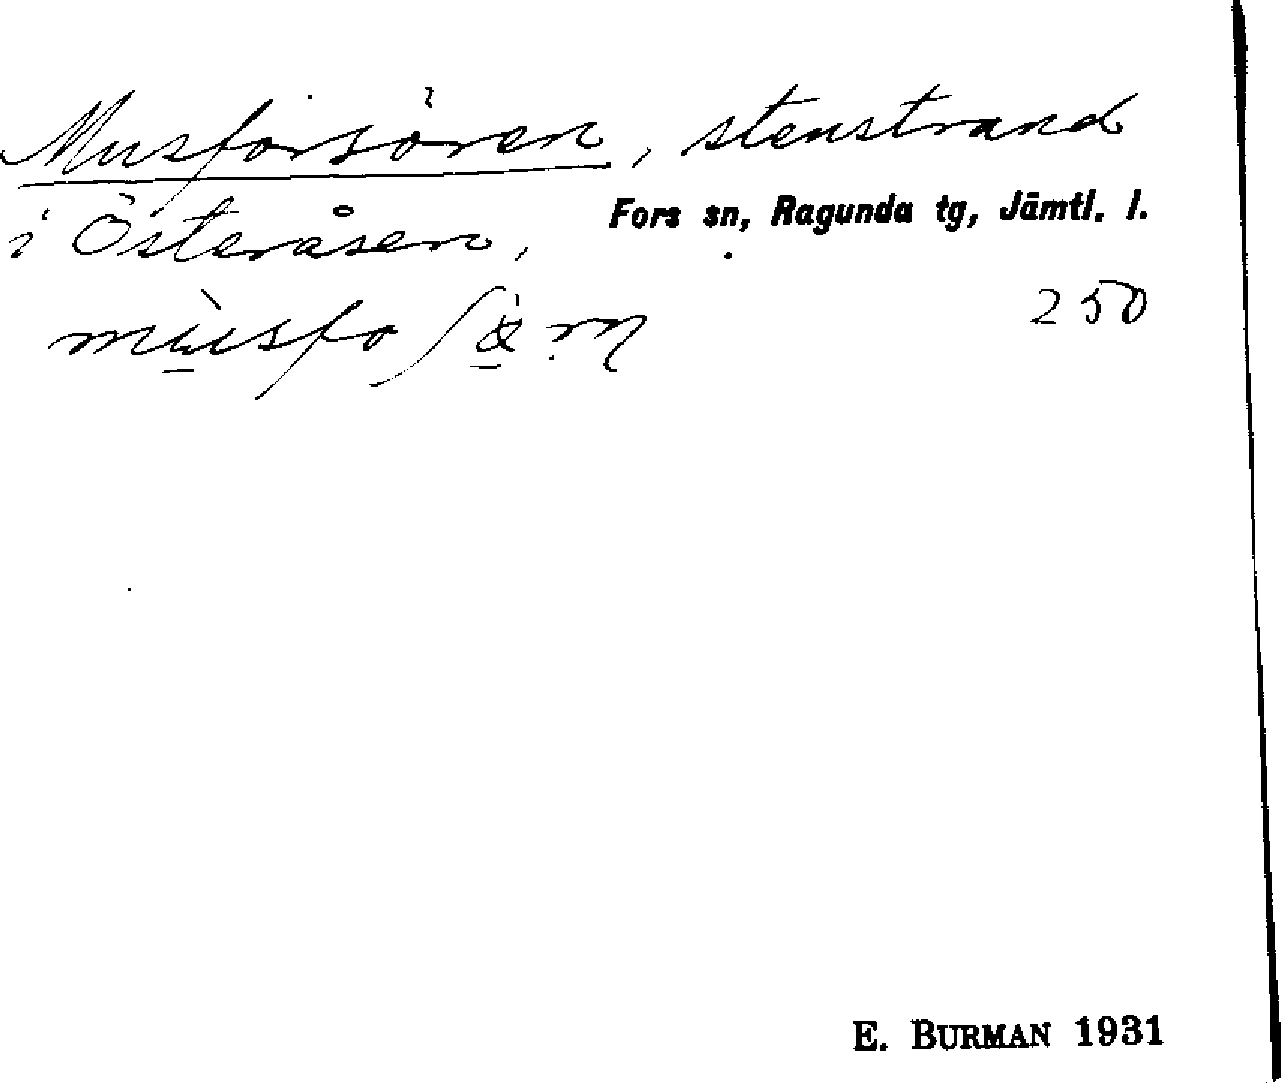 Musforsören, stenstrand
i Österåsen,
Fors sn, Ragunda tg, Jämtl. l.
250
E. BURMAN 1931